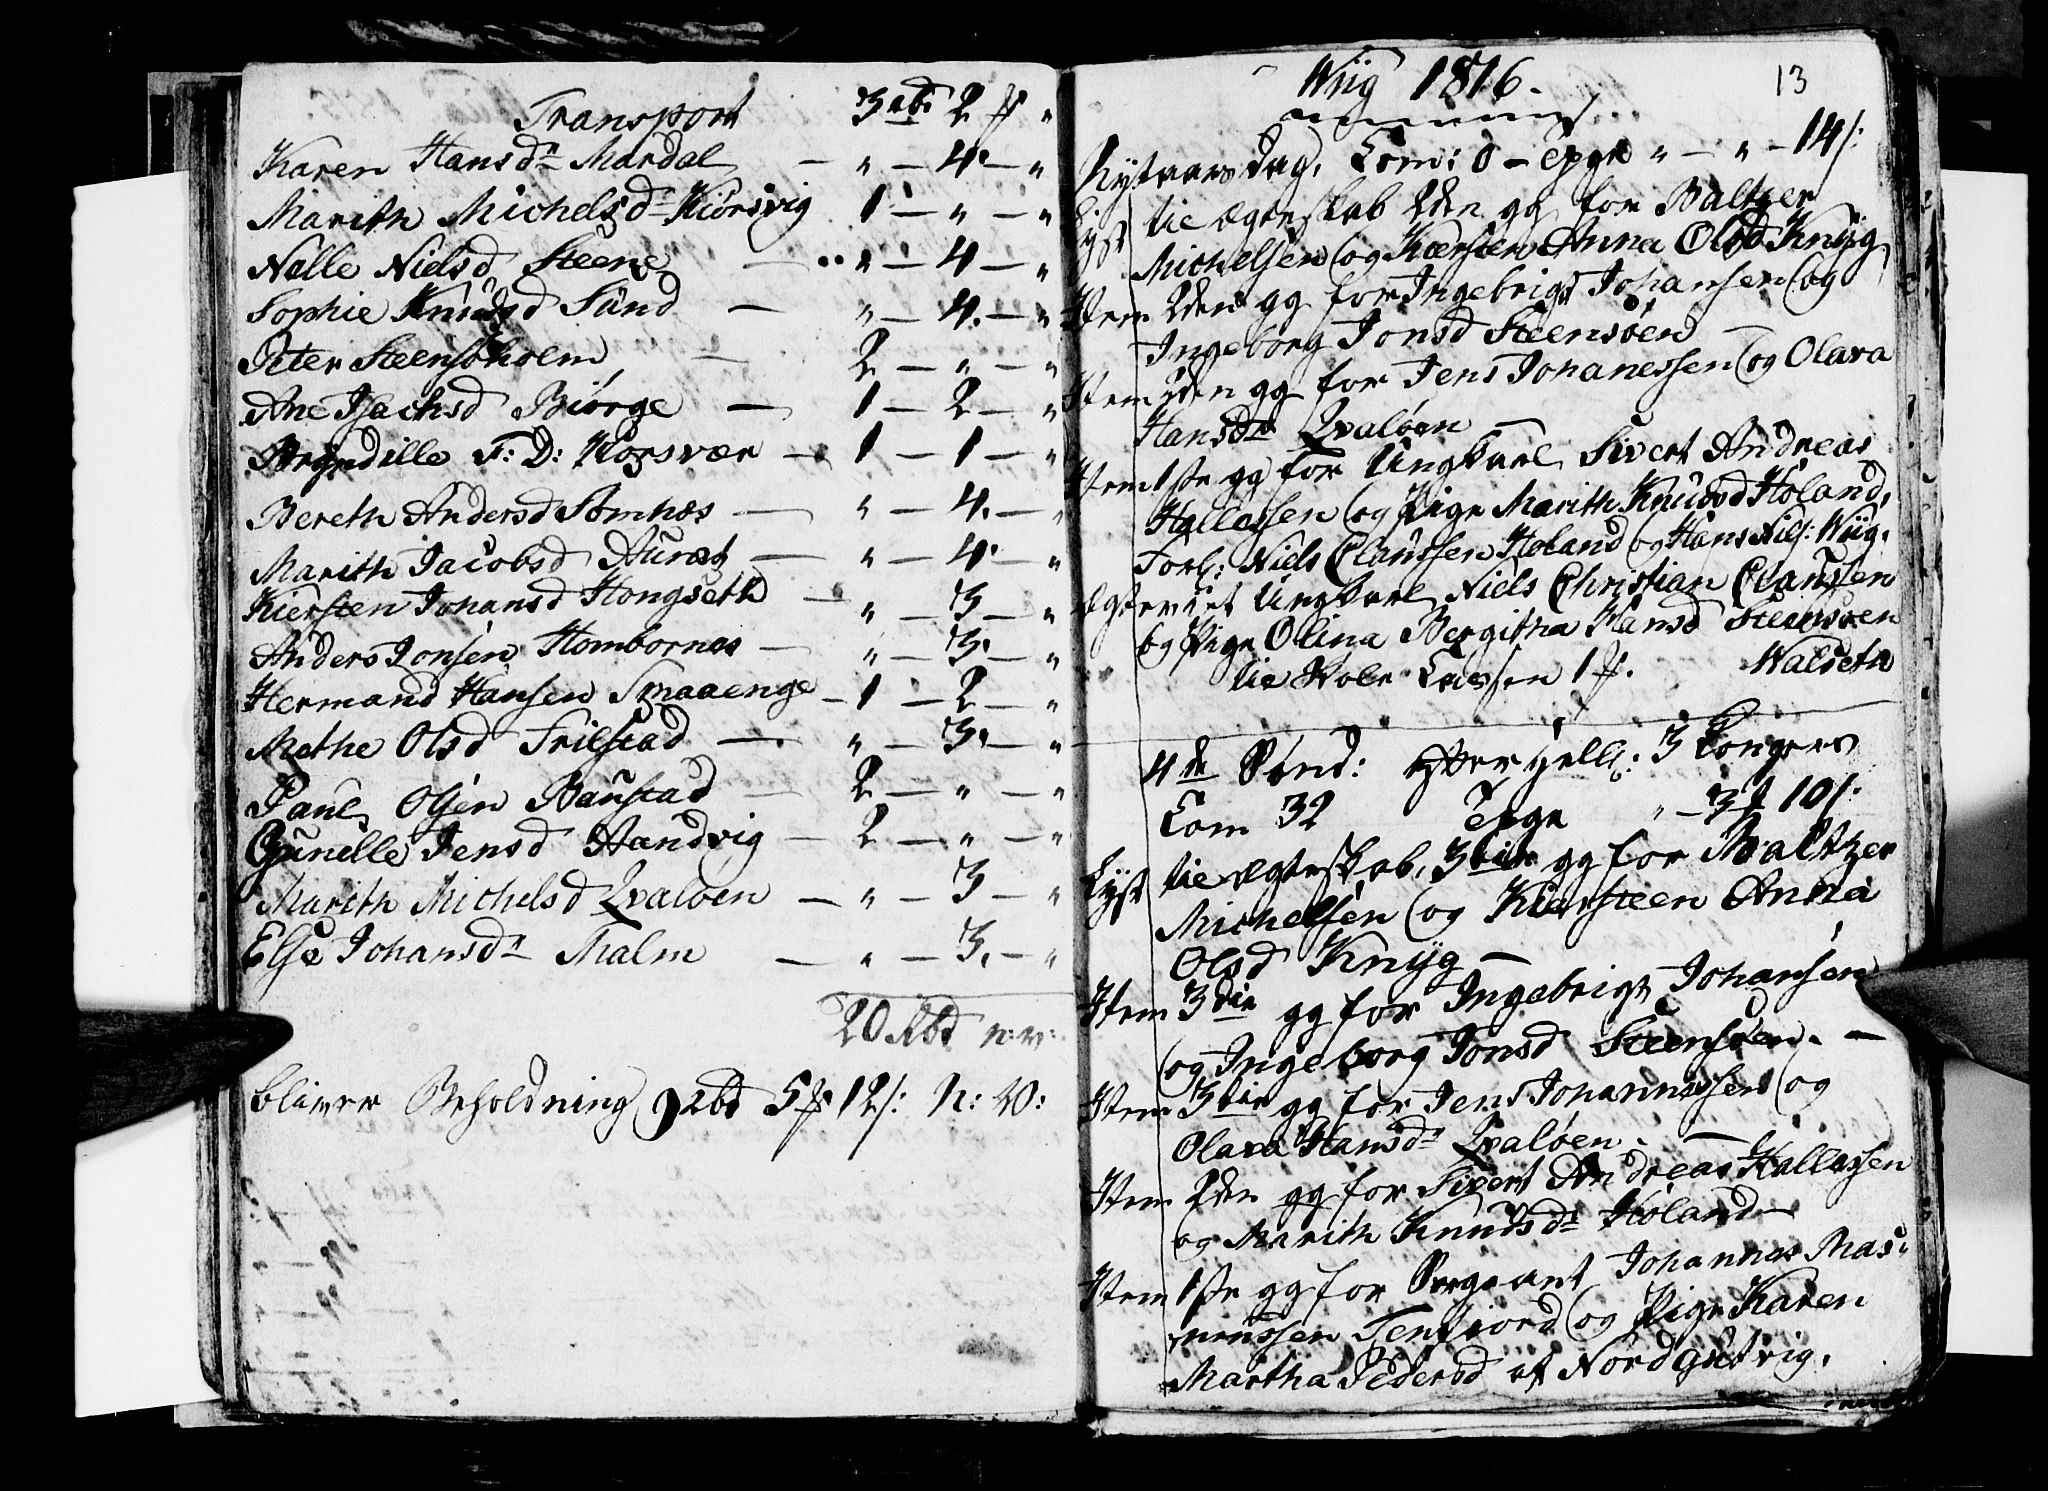 Transport 3 rbd 2 ß "
Karen Hansdr Mardal — " — 4. — "
Marith Michelsd Kiörsvig 1 — " — "
Nelle Nielsd Steene — " — 4 — "
Sophie Knudsd Sund — " — 4. — "
Peter Steensöholm — 2 — " — "
Ane Isachsd Biörge — 1 — 2 — "
Bryndille T: D: Korsvær — 1 — 1 — "
Bereth Andersd Somnæs — " — 4. — "
Marith Jacobsd — " — 4. — "
Kiersten Johansd Hongseth — " — 3 — "
Anders Jonsen Hombornæs — " — 3. — "
Hermand Hansen Smaaenge — 1 — 2 — "
Methe Olsd Frilstad — " — 3. — "
Paul Olsen Baustad — 2 — " — "
Gunille Jensd Aandvig — 2 — " — "
Marith Michelsd Qvalöen — " — 3 — "
Else Johansdr Malm — " — 3. — "
20 Rbd n: v:
bliver Beholdning 9 Rbd 5 ß 12 s: N: V:
Wiig 1816. 13
Nytaarsdag. Com: 0 — " — " — 14 s:
Lyst til Ægteskab 2den gg for Baltzer
Michelsen og Kiersten Anna Olsd Knyg
Item 2den gg for Ingebrigt Johansen og
Ingeborg Jonsd Steensöen —
Item 2den gg for Jens Johanessen og Olava
Hansdr Qvalöen —
Item 1ste gg for Ungkarl Sivert Andreas
Hallessen og Pige Marith Knudsd Höland,
Forl: Niels Claussen Höland og Hans Niels: Wiig.
Ægteviet Ungkarl Niels Christian Claussen
og Pige Olina Bergitha Hansd Steensöen
til Skole Cassen 1 ß. Walseth
4de Sönd: efter Hell: 3 Konger
Com 32 " — 3 ß 10 s:
Lyst til Ægteskab, 3die gg for Baltzer
Michelsen og Kiersteen Anna
Olsd Knyg —
Item 3die gg for Ingebrigt Johansen
og Ingeborg Jonsd Steensöen. —
Item 3die gg for Jens Johannessen og
Olava Hansdr Qvalöen. —
Item 2den gg for Sivert Andreas Hallessen
og Marith Knudsdr Höland —
Item 1ste gg for Sergeant Johannes Ras-
mussen Tenfiord og Pige Karen
Martha Pedersd af Nordgutvig.